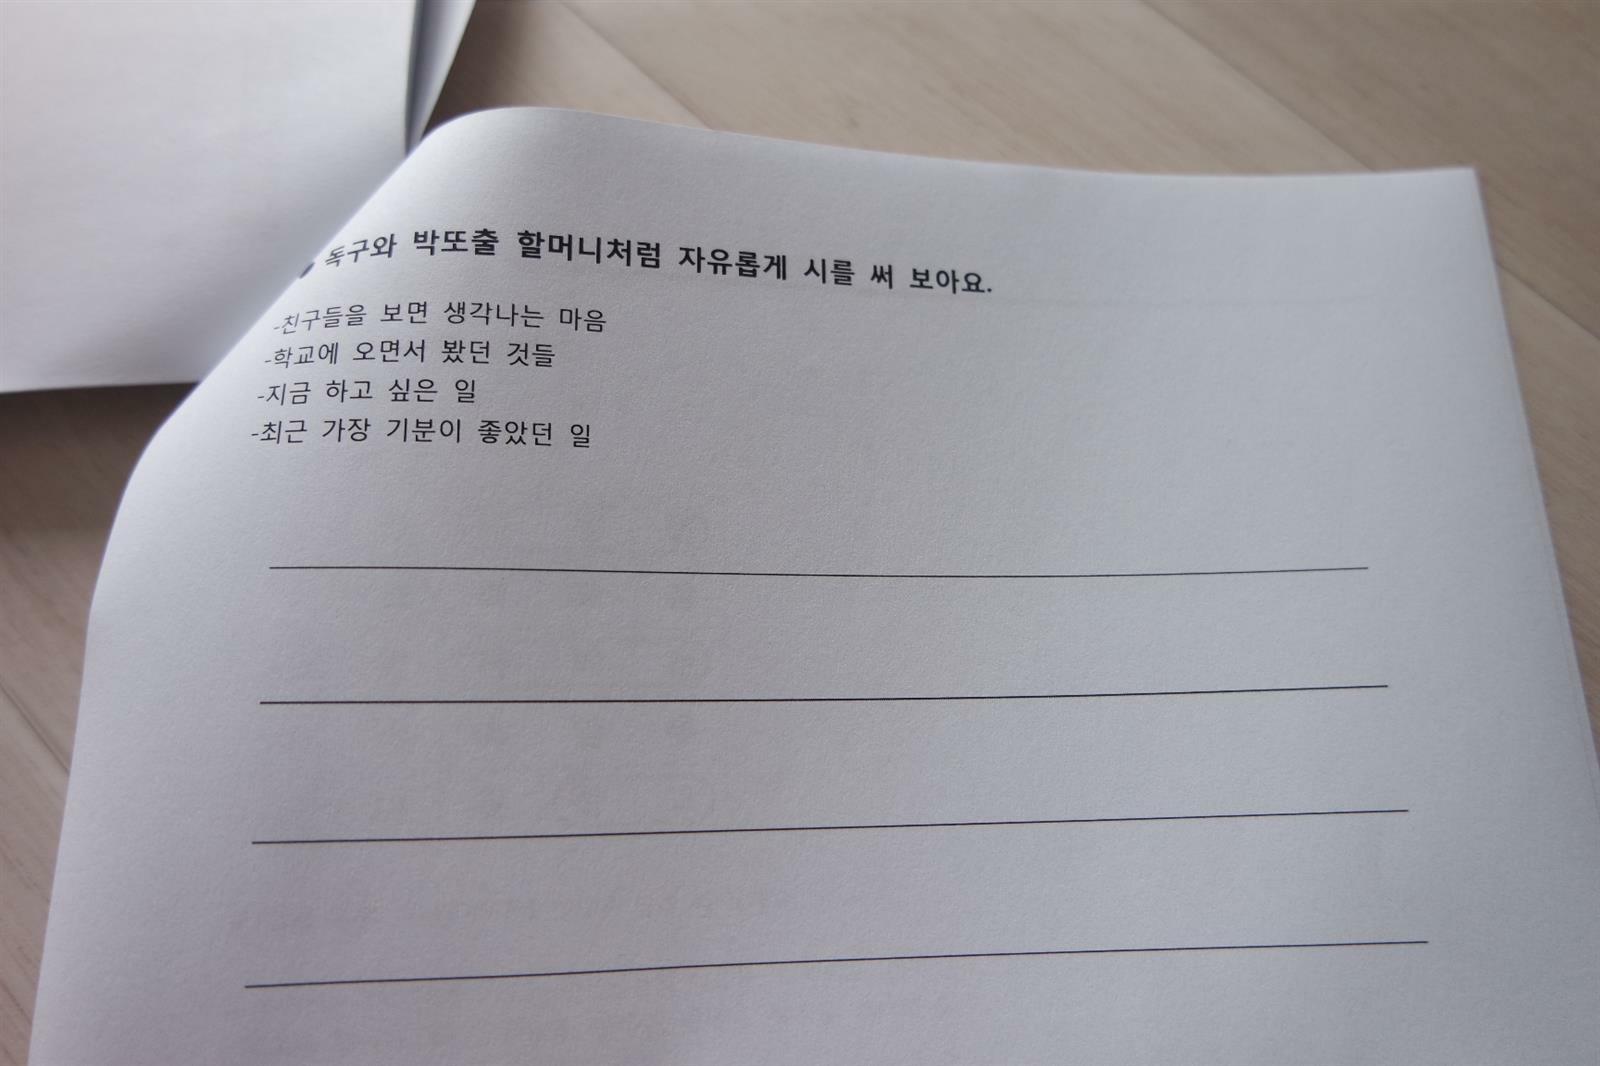 ● 독구와 박또출 할머니처럼 자유롭게 시를 써 보아요.
-친구들을 보면 생각나는 마음
-학교에 오면서 봤던 것들
-지금 하고 싶은 일
-최근 가장 기분이 좋았던 일